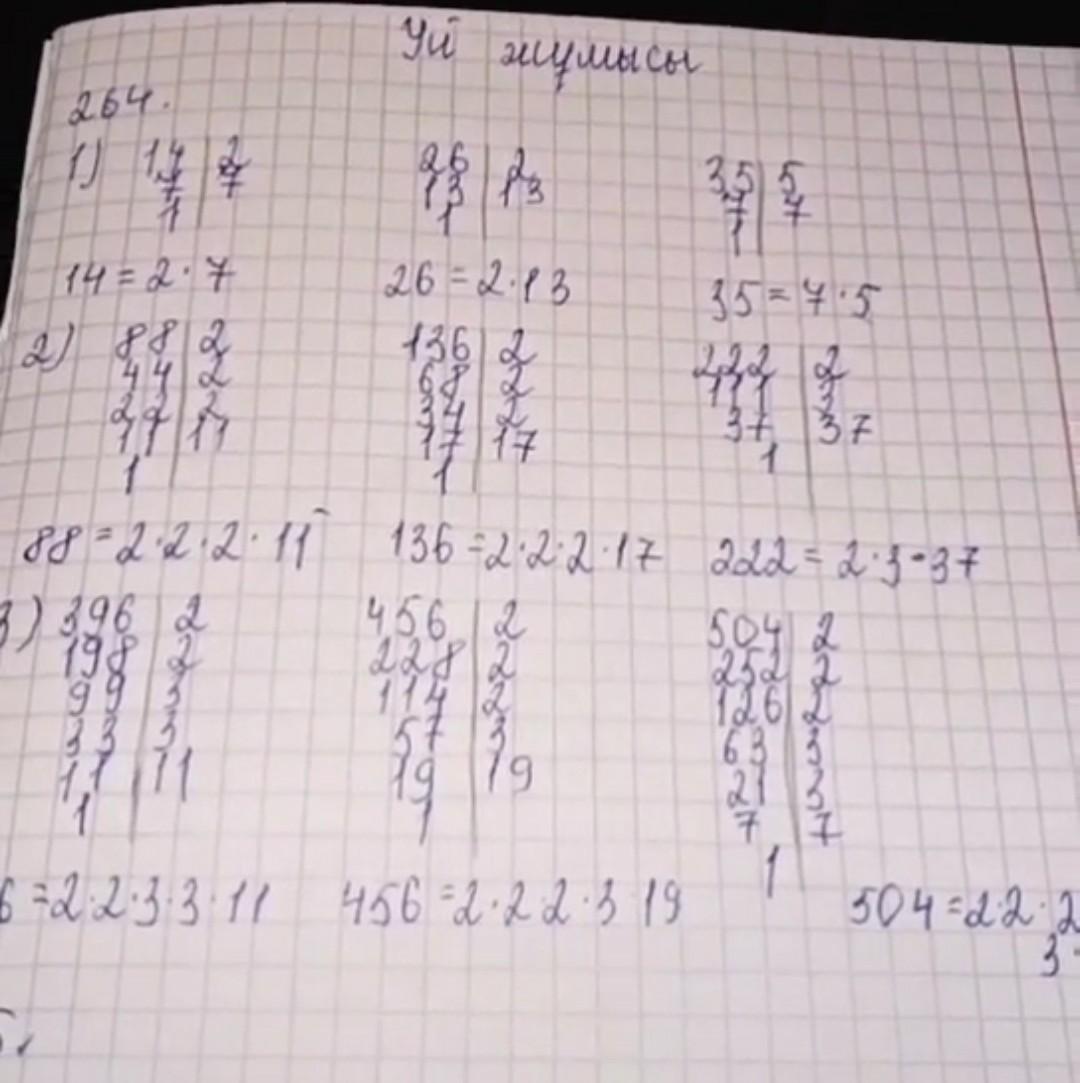 Үй жұмысы
264.
1) 14 | 2 26 | 2 35 | 5
7 | 7 13 | 13 7 | 7
1 | 1 | 1 |
14 = 2 · 7 26 = 2 · 13 35 = 7 · 5
2) 88 | 2 136 | 2 222 | 2
44 | 2 68 | 2 111 | 3
22 | 2 34 | 2 37 | 37
11 | 11 17 | 17 1 |
1 | 1 |
88 = 2 · 2 · 2 · 11 136 = 2 · 2 · 2 · 17 222 = 2 · 3 · 37
3) 396 | 2 456 | 2 504 | 2
198 | 2 228 | 2 252 | 2
99 | 3 114 | 2 126 | 2
33 | 3 57 | 3 63 | 3
11 | 11 19 | 19 21 | 3
1 | 1 | 7 | 7
1
6 = 2 · 2 · 3 · 3 · 11 456 = 2 · 2 · 2 · 3 · 19 504 = 2 · 2 · 2
3 ·